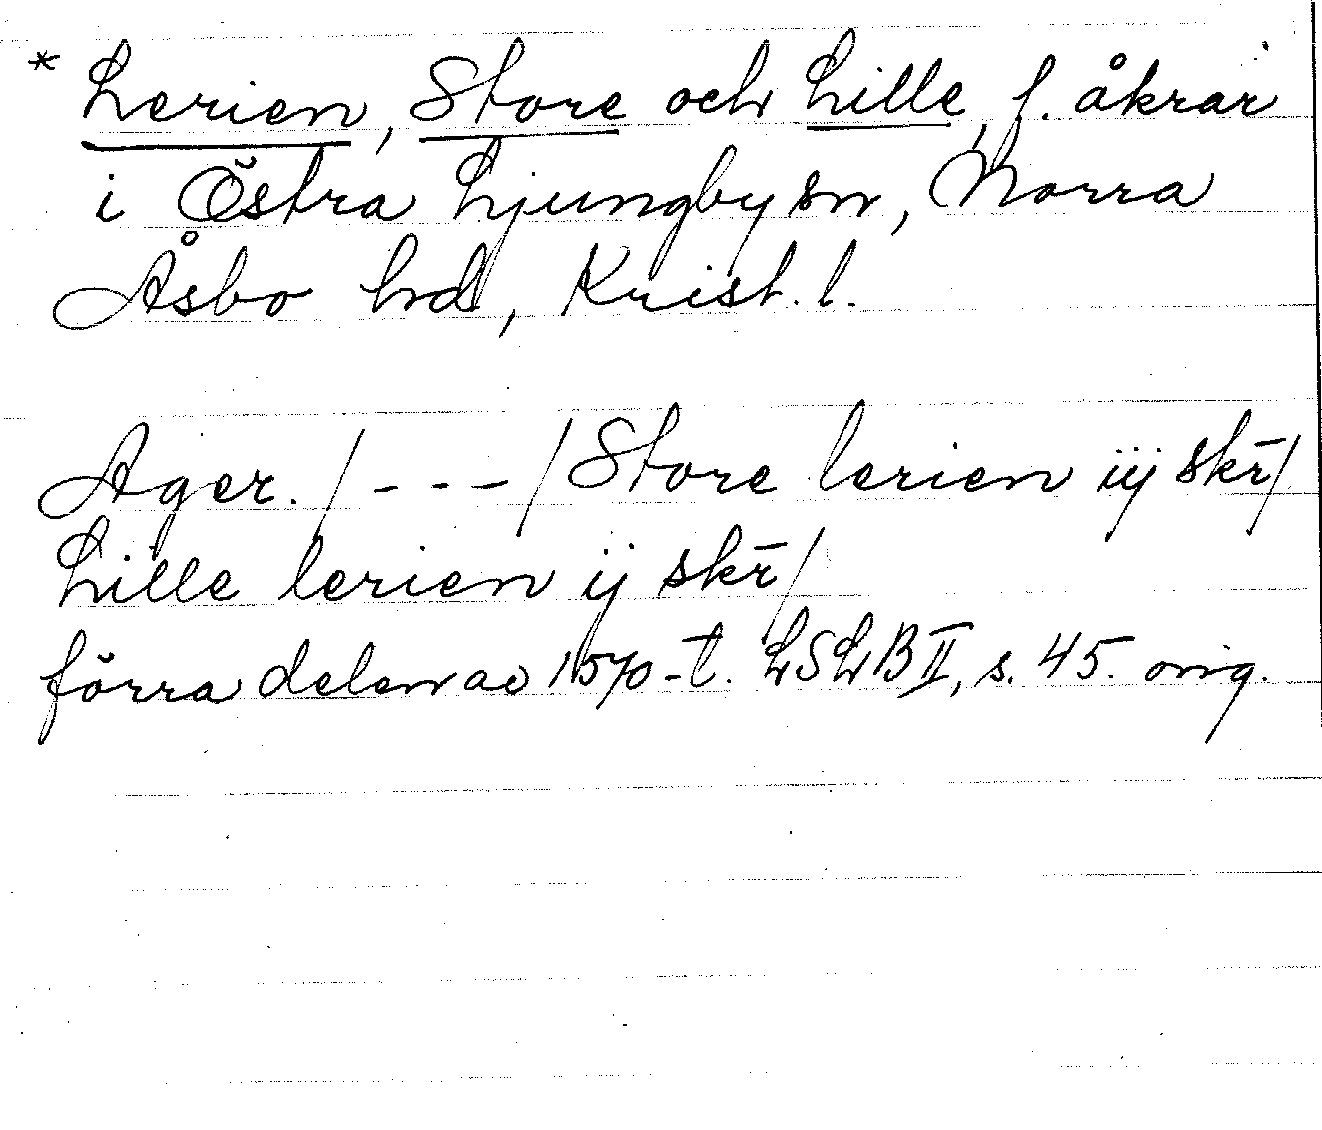 * Lerien, Store och Lille, f. åkrar
i Östra Ljungby sn, Norra
Åsbo hd, Krist. l.
Ager. / - - - / Store lerien iij skr̄ /
Lille lerien ij skr̄ /
förra delen av 1570-t. LSLB II, s. 45. orig.